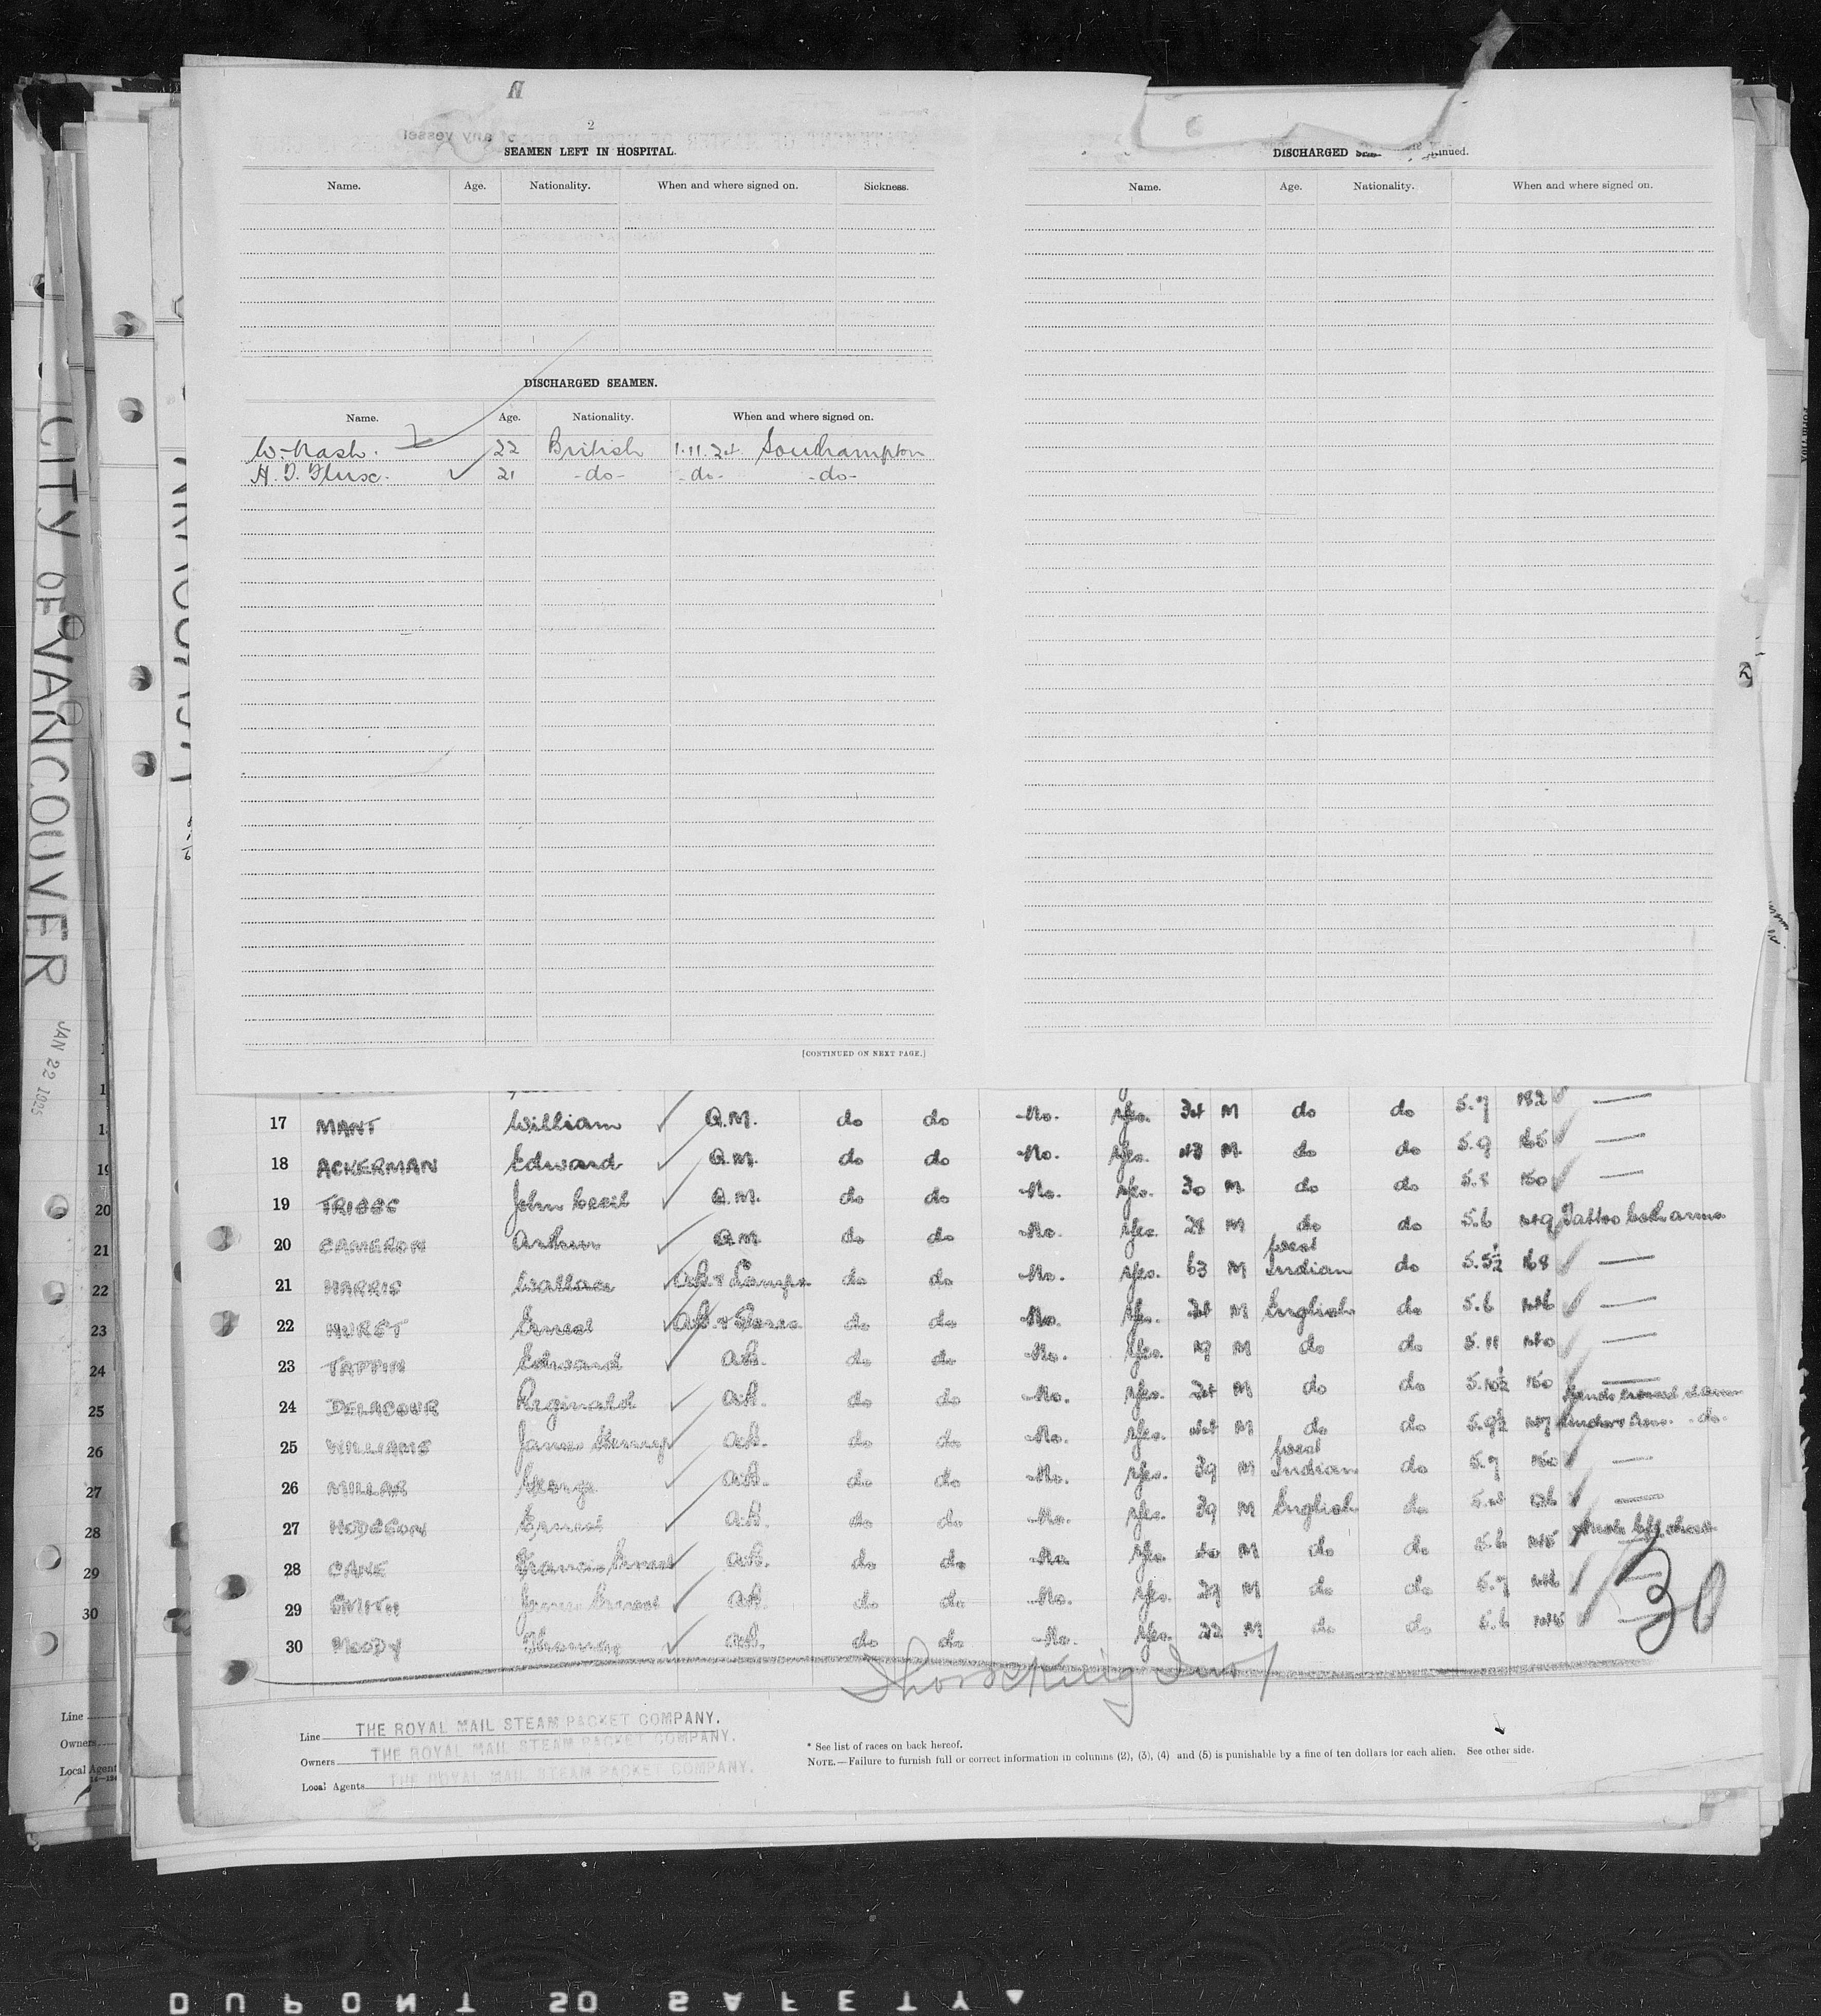 2
any vessel
SEAMEN LEFT IN HOSPITAL.
Name. Age. Nationality. When and where signed on. Sickness.
DISCHARGED SEAMEN.
Name. Age. Nationality. When and where signed on.
W. Nash. 22 British 1.11.24. Southampton
H. D. Flux. 21 -do- -do- -do-
[CONTINUED ON NEXT PAGE.]
DISCHARGED
Name. Age. Nationality. When and where signed on.
CITY OF VANCOUVER
JAN 22 1925
17 MANT William Q.M. do do No. Yes. 34 M do do 5.7 182
18 ACKERMAN Edward Q.M. do do No. Yes. 43 M do do 5.9 165
19 TRIGGS John Cecil Q.M. do do No. Yes. 30 M do do 5.8 150
20 CAMERON Arthur Q.M. do do No. Yes. 28 M do do 5.6 149 Tattoo both arms
21 HARRIS Wallace A.B. & Lamps do do No. Yes. 63 M West Indian do 5.5½ 168
22 HURST Ernest A.B. do do No. Yes. 24 M English do 5.6 146
23 TAPPIN Edward A.B. do do No. Yes. 19 M do do 5.11 140
24 DELACOUR Reginald A.B. do do No. Yes. 24 M do do 5.10½ 150
25 WILLIAMS James Henry A.B. do do No. Yes. 44 M do do 5.9½ 147
26 MILLAR George A.B. do do No. Yes. 39 M West Indian do 5.7 160
27 HODGSON Ernest A.B. do do No. Yes. 39 M English do
28 CANE Francis Ernest A.B. do do No. Yes. M do do 5.6 145
29 SMITH James Ernest A.B. do do No. Yes. 29 M do do 5.7
30 MOODY Thomas A.B. do do No. Yes. 22 M do do 5.6 145
30
Line THE ROYAL MAIL STEAM PACKET COMPANY.
Owners THE ROYAL MAIL STEAM PACKET COMPANY.
Local Agents THE ROYAL MAIL STEAM PACKET COMPANY.
* See list of races on back hereof.
NOTE.—Failure to furnish full or correct information in columns (2), (3), (4) and (5) is punishable by a fine of ten dollars for each alien. See other side.
19
20
21
22
23
24
25
26
27
28
29
30
Line
Owners
Local Agent
DUPONT SO SAFETY